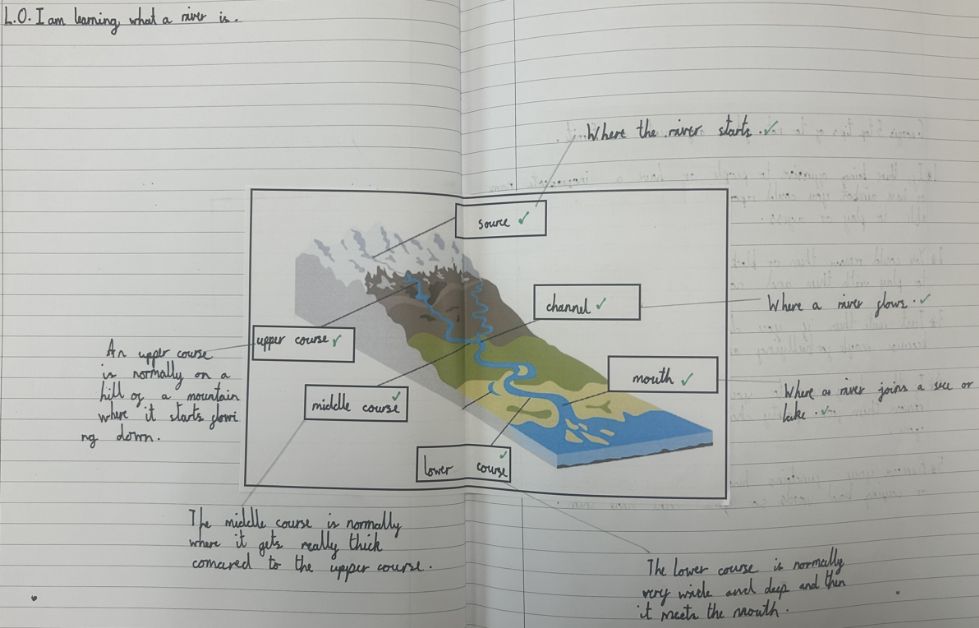 L.O. I am learning what a river is.
Where the river starts.
source
channel
Where a river flows.
upper course
An upper course
is normally on a
hill of a mountain
where it starts flowi
ng down.
mouth
Where a river joins a sea or
lake.
middle course
lower course
The middle course is normally
where it gets really thick
comared to the upper course.
The lower course is normally
very wide and deep and then
it meets the mouth.